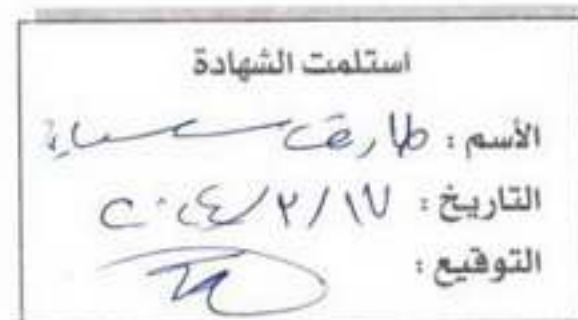 استلمت الشهادة
الأسم : طارق
التاريخ : ١٧/٢/٢٠٢٤
التوقيع :